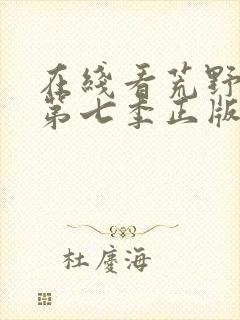 在线看荒野
第七季正版
杜庆海